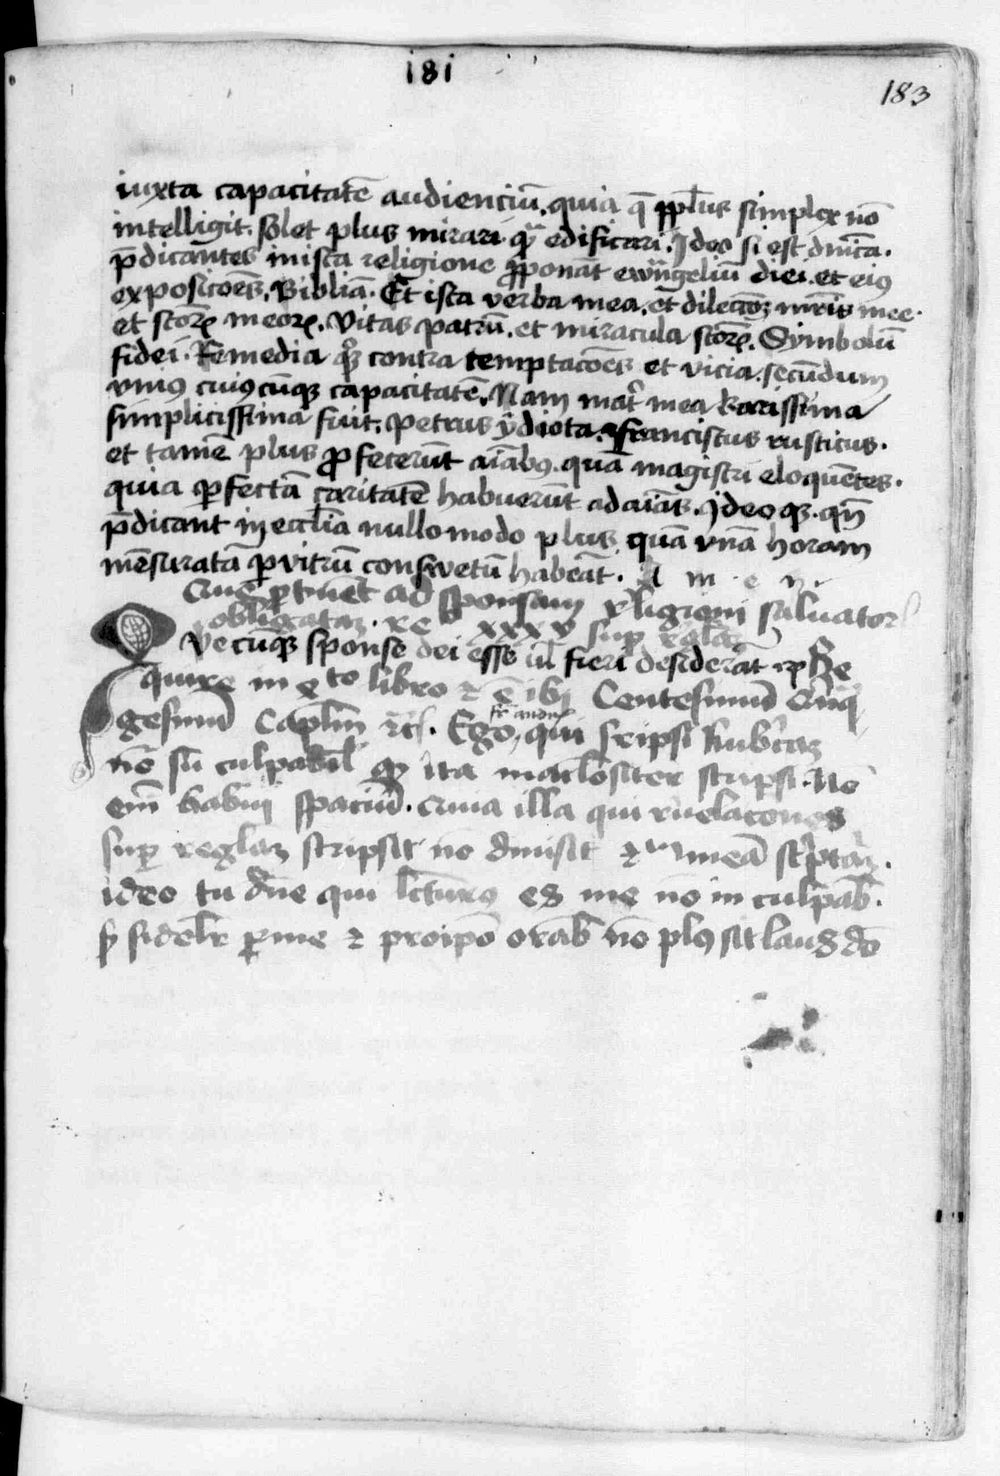 181
183
iuxta capacitatē audienciū. quia q̄ ppl̄us simplex nō
intelligit. solet plus mirari q̄ꝫ edificari. Ideo si est dn̄ica.
p̄dicantes in ista religione ꝓponāt ewāngeliū diei. et eiꝰ
exposicōes. Bibliā. Et ista verba mea. et dilectōꝫ mr̄is mee.
et sc̄orꝝ meorꝝ. Vitas patrū. et miracula sc̄orꝝ. Symbolū
fidei. Remedia qꝫ contra temptacōes et vicia. secūndum
vniꝰ cuiꝰcūqꝫ capacitatē. Nam mat̄ mea karissima
simplicissima fuit. Petrus ydiota. Franciscus rusticus.
et tamē plus ꝓfecerūt aīabꝰ. quā magistri eloquētes.
quia ꝑfectā caritatē habuerūt ad aīas. Ideo qꝫ. qn̄
p̄dicant in ecclīa nullo modo plus quā vnā horam
mēsuratā ꝑ vitrū conswetū habeāt. A m e n.
Que ꝑtinēt ad sponsam religioni saluator
obligatas. re xxxv sup̄ reglāꝫ
Quecūqꝫ sponse dei esse ul̄ fieri desiderāt
quire in to libro ⁊ ē ibi Centesimū
gesimū Capl̄m ⁊c̄. Ego, qui scripsi Rubricaꝫ
nō sū culpabil' qꝫ ita maculositer scripsi. Nō
em̄ habui spaciū. quia illa qui reuelacones
sup̄ reglāꝫ scripsit nō dimisit meā sc̄ptāꝫ.
ideo tu dn̄e qui lc̄turꝰ es me nō inculpab̄.
ꝫ fidel̄r ꝑ me ⁊ pro ipō orab̄ nō plꝰ sit laus dō